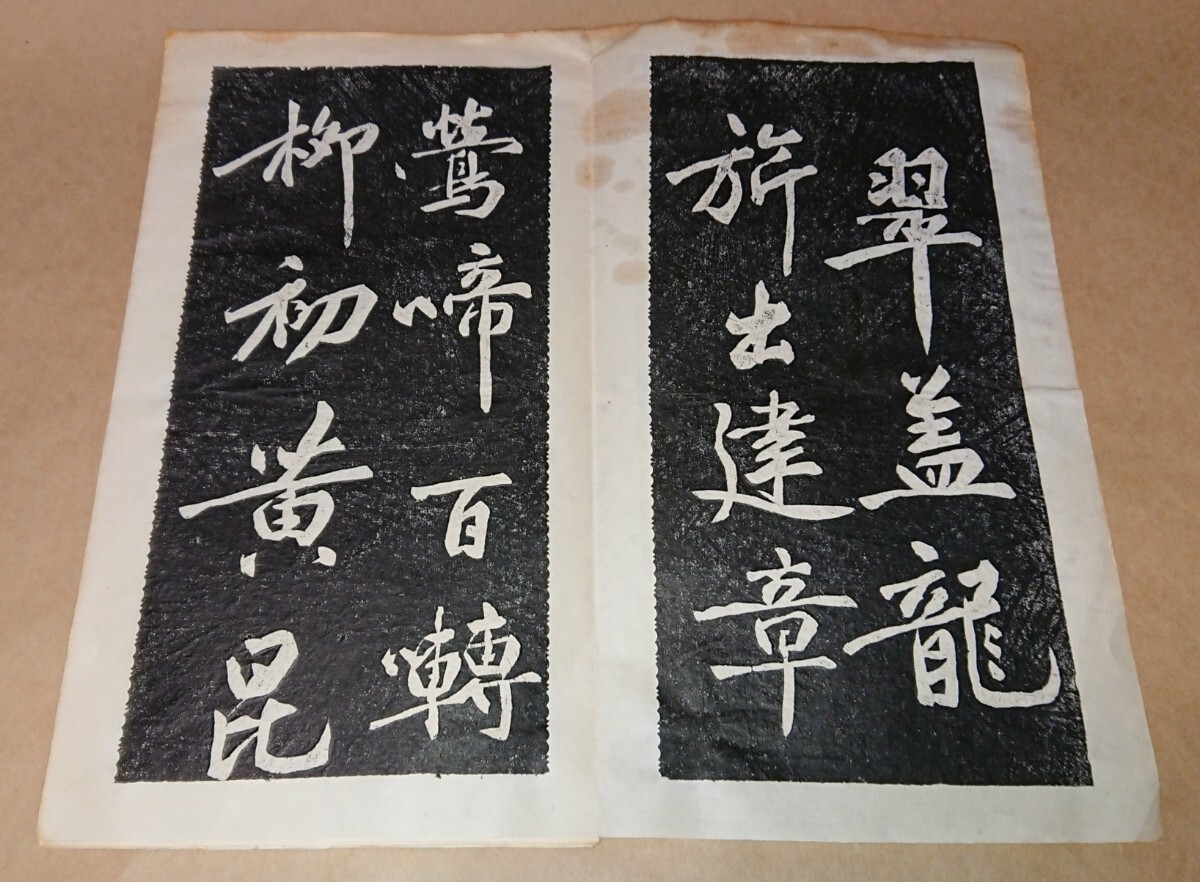 翠盖龍
旂出建章
鶯啼百囀
柳初黄昆